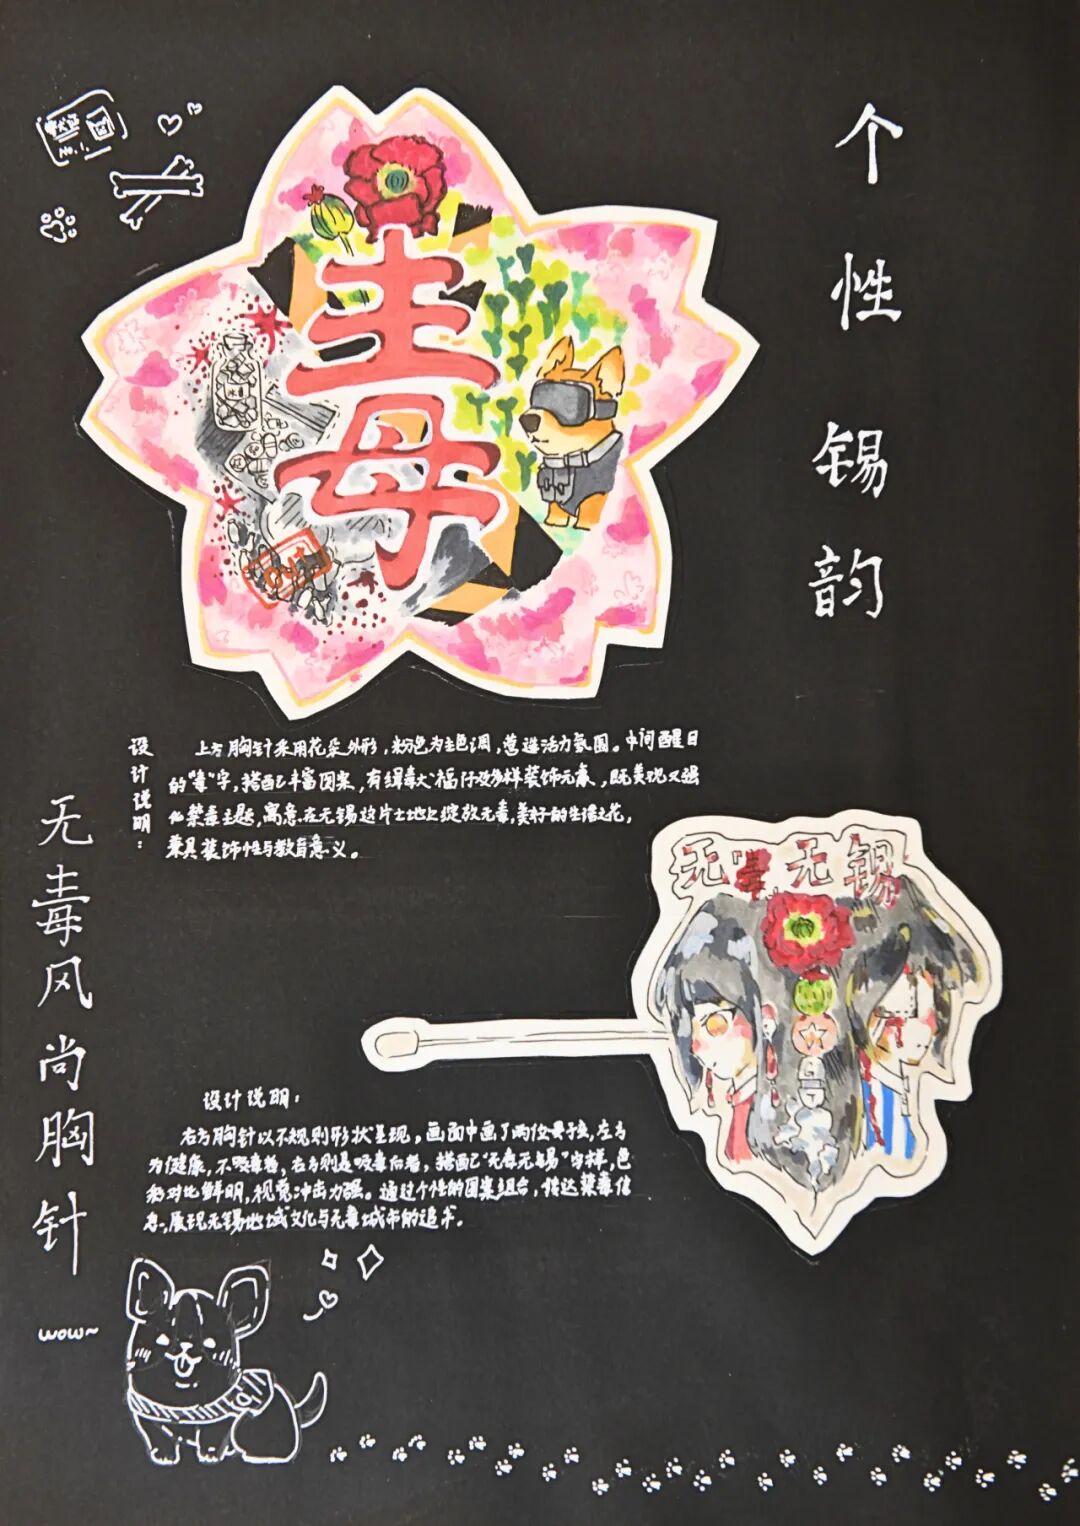 个性锡韵
毒
设计说明：
上方胸针采用花朵外形，粉色为主色调，营造活力氛围。中间醒目
的“毒”字，搭配丰富图案，有缉毒犬福仔及多样装饰元素，既美观又强
化禁毒主题，寓意在无锡这片土地上绽放无毒，美好的生活之花，
兼具装饰性与教育意义。
无毒风尚胸针
无毒无锡
设计说明：
右方胸针以不规则形状呈现，画面中画了两位女孩，左方
为健康，不吸毒者，右方则是吸毒后者，搭配“无毒无锡”字样，色
彩对比鲜明，视觉冲击力强。通过个性的图案组合，传达禁毒信
息，展现无锡地域文化与无毒城市的追求。
wow~